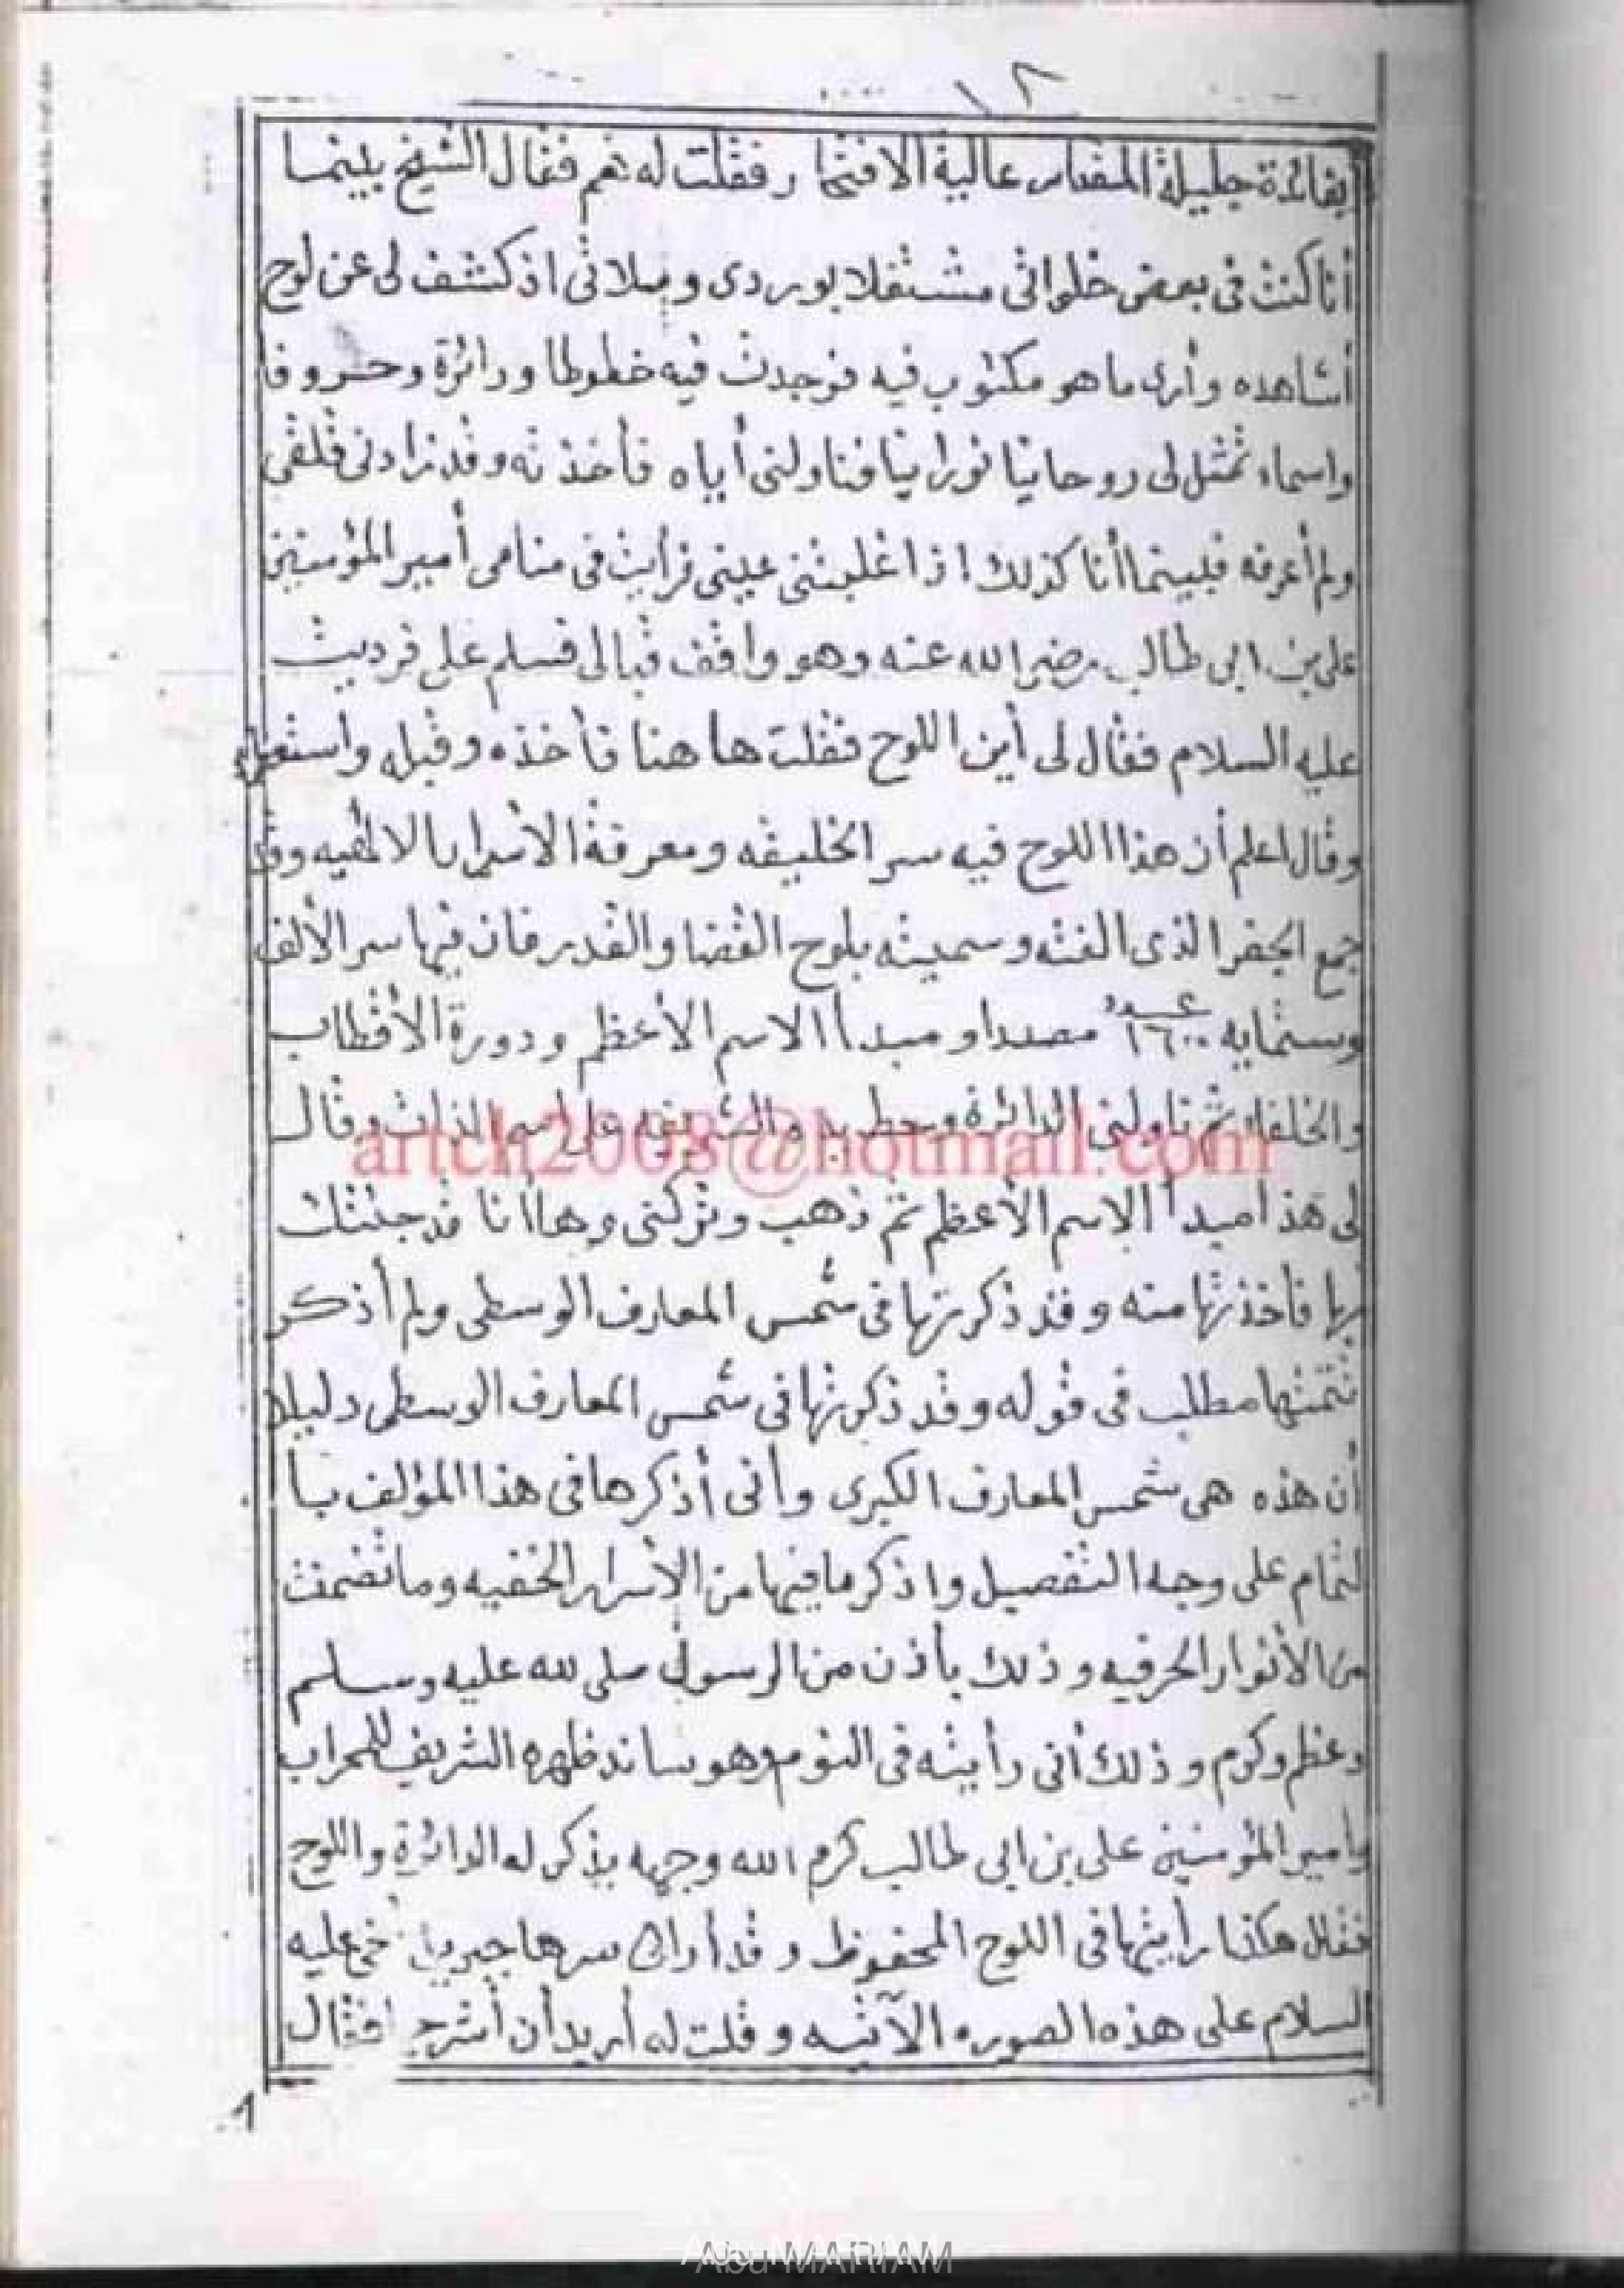 ١٢
بفائدة جليلة المقدار عالية الافتخار فقلت له نعم فقال الشيخ بينما
أنا كنت في بعض خلواتي مشتغلا بوردي وصلاتي اذ كشف لي عن لوح
أشاهده وأرى ما هو مكتوب فيه فوجدت فيه خطوطا ودائرة وحروفا
واسماء تمثل لي روحانيا نورانيا فناولني أياه فأخذته وقد زاد ني قلقى
ولم أعرفه فبينما أنا كذلك اذا غلبتني عيني فرأيت في منامي أمير المؤمنين
علي بن ابي طالب رضي الله عنه وهو واقف قبالي فسلم علي فرديت
عليه السلام فقال لي أين اللوح فقلت ها هنا فأخذه وقبله
وقال اعلم أن هذا اللوح فيه سر الخليفه ومعرفة الأسرار الالهيه وقد
جمع الجفر الذي الفته وسميته بلوح القضا والقدر فان فيها سر الألف
وستمايه عدد ١٦٠٠ مصدا ومبدأ الاسم الأعظم ودورة الأقطاب
والخلفاء ثم ناولني الدائرة على اسم الذات وقال
لي هذا مبدأ الاسم الأعظم ثم ذهب وتركني وها أنا قد جئتك
بها فأخذتها منه وقد ذكرتها في شمس المعارف الوسطى ولم أذكر
تتمتها مطلب في قوله وقد ذكرتها في شمس المعارف الوسطى دليلا
أن هذه هي شمس المعارف الكبرى وأني أذكرها في هذا المؤلف با
لتمام على وجه التفصيل واذكر ما فيها من الأسرار الخفيه وما تضمنت
من الأنوار الحرفيه وذلك بأذن من الرسول صلى لله عليه وسلم
وعظم وكرم وذلك أني رأيته في النوم وهو ساند ظهره الشريف للمحراب
وأمير المؤمنين علي بن ابي طالب كرم الله وجهه يذكر له الدائرة واللوح
فقال هكذا رأيتها في اللوح المحفوظ وقد أراك سرها عليه
السلام على هذه الصوره الآتيه وقلت له أريد أن فقال
artch2008@hotmail.com
Abu MARIAM